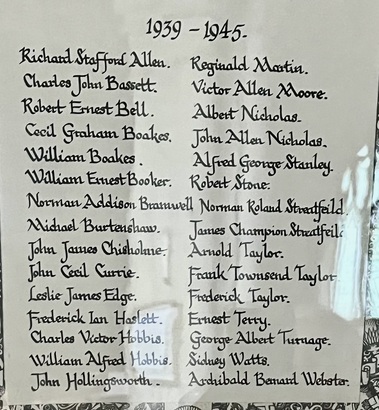 1939 - 1945.
Richard Stafford Allen.
Charles John Bassett.
Robert Ernest Bell.
Cecil Graham Boakes.
William Boakes.
William Ernest Booker.
Norman Addison Bramwell
Michael Burtenshaw.
John James Chisholme.
John Cecil Currie.
Leslie James Edge.
Frederick Ian Haslett.
Charles Victor Hobbis.
William Alfred Hobbis.
John Hollingsworth.
Reginald Martin.
Victor Allen Moore.
Albert Nicholas.
John Allen Nicholas.
Alfred George Stanley.
Robert Stone.
Norman Roland Streatfeild.
James Champion Streatfeild
Arnold Taylor.
Frank Townsend Taylor
Frederick Taylor.
Ernest Terry.
George Albert Turnage.
Sidney Watts.
Archibald Benard Webster.